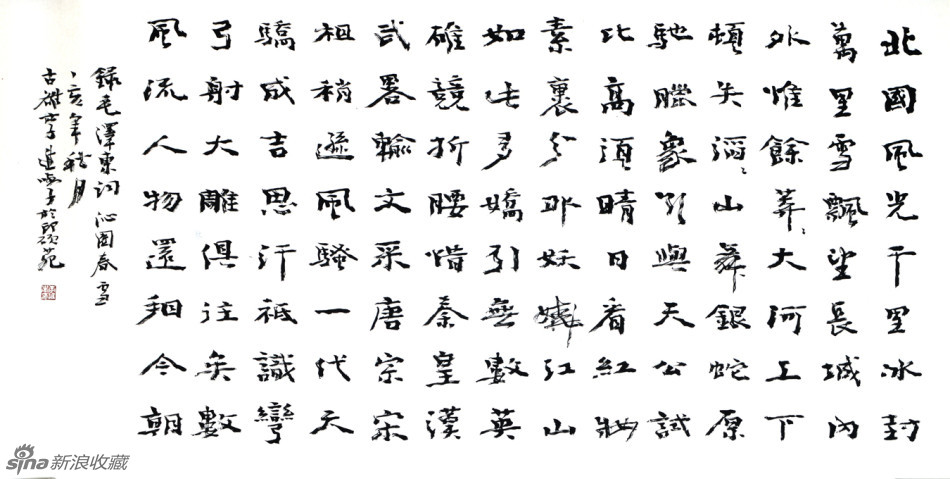 北國風光千里冰封
萬里雪飄望長城內
外惟餘莽々大河上下
頓失滔々山舞銀蛇原
馳臘象欲與天公試
比高須晴日看紅妝
素裹分外妖嬈江山
如此多嬌引無數英
雄競折腰惜秦皇漢
武略輸文采唐宗宋
祖稍遜風騷一代天
驕成吉思汗祗識彎
弓射大雕俱往矣數
風流人物還看今朝
錄毛澤東詞沁園春雪
丁亥年秋月
sina 新浪收藏